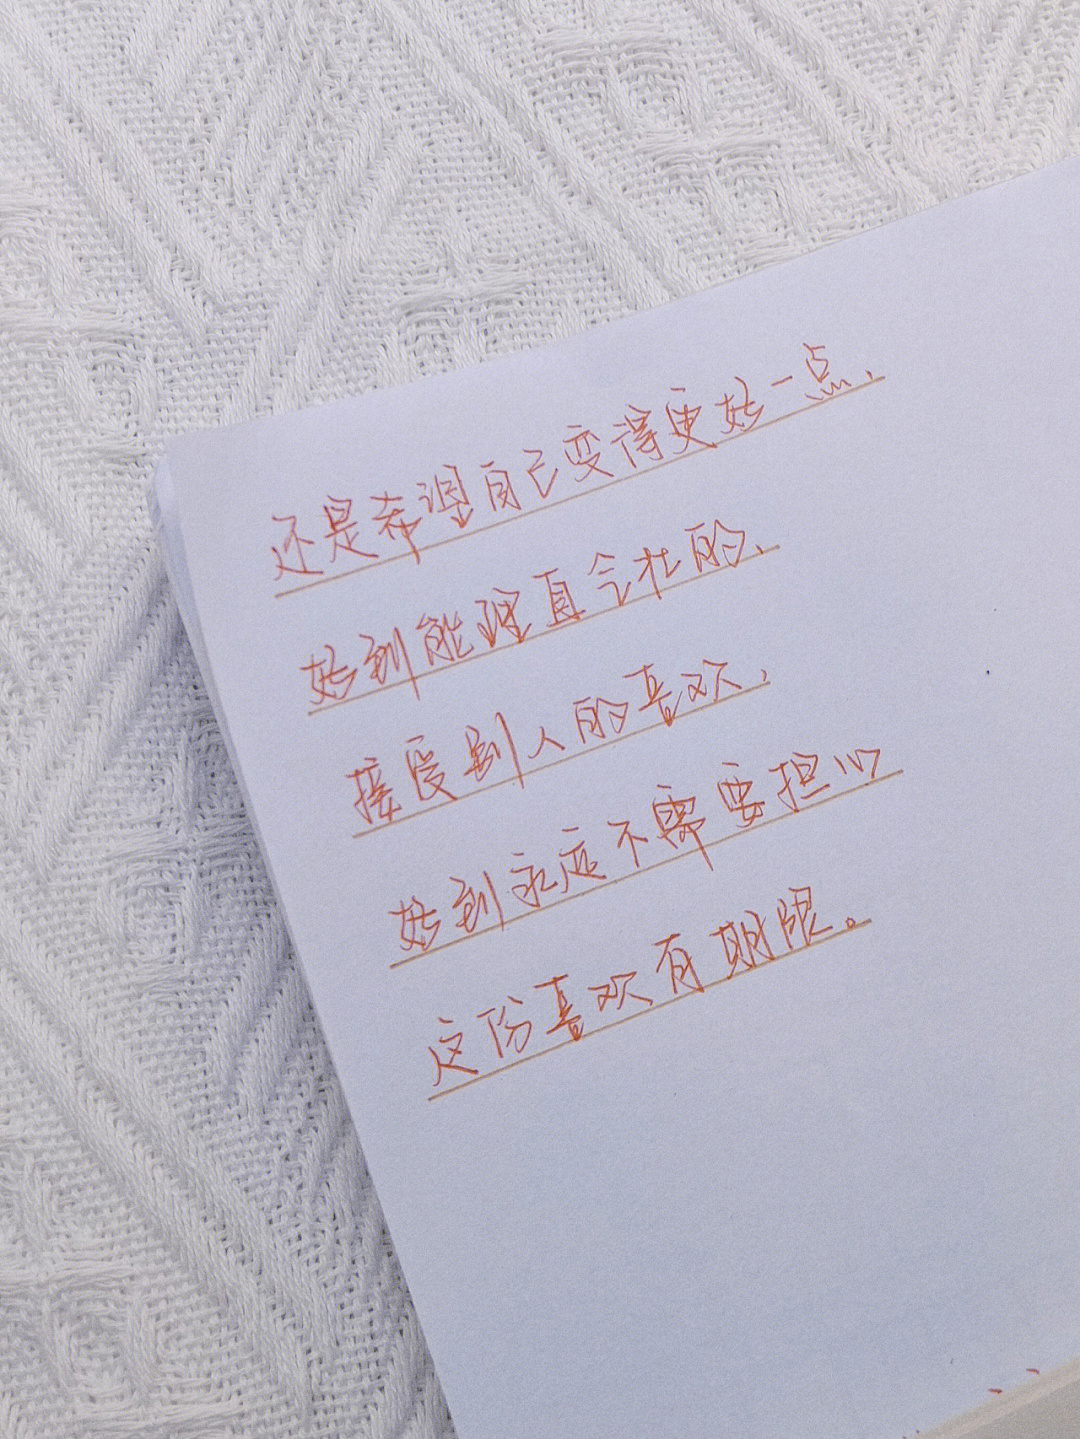 还是希望自己变得更好一点、
好到能理直气壮的、
接受别人的喜欢、
好到永远不需要担心
这份喜欢有期限。